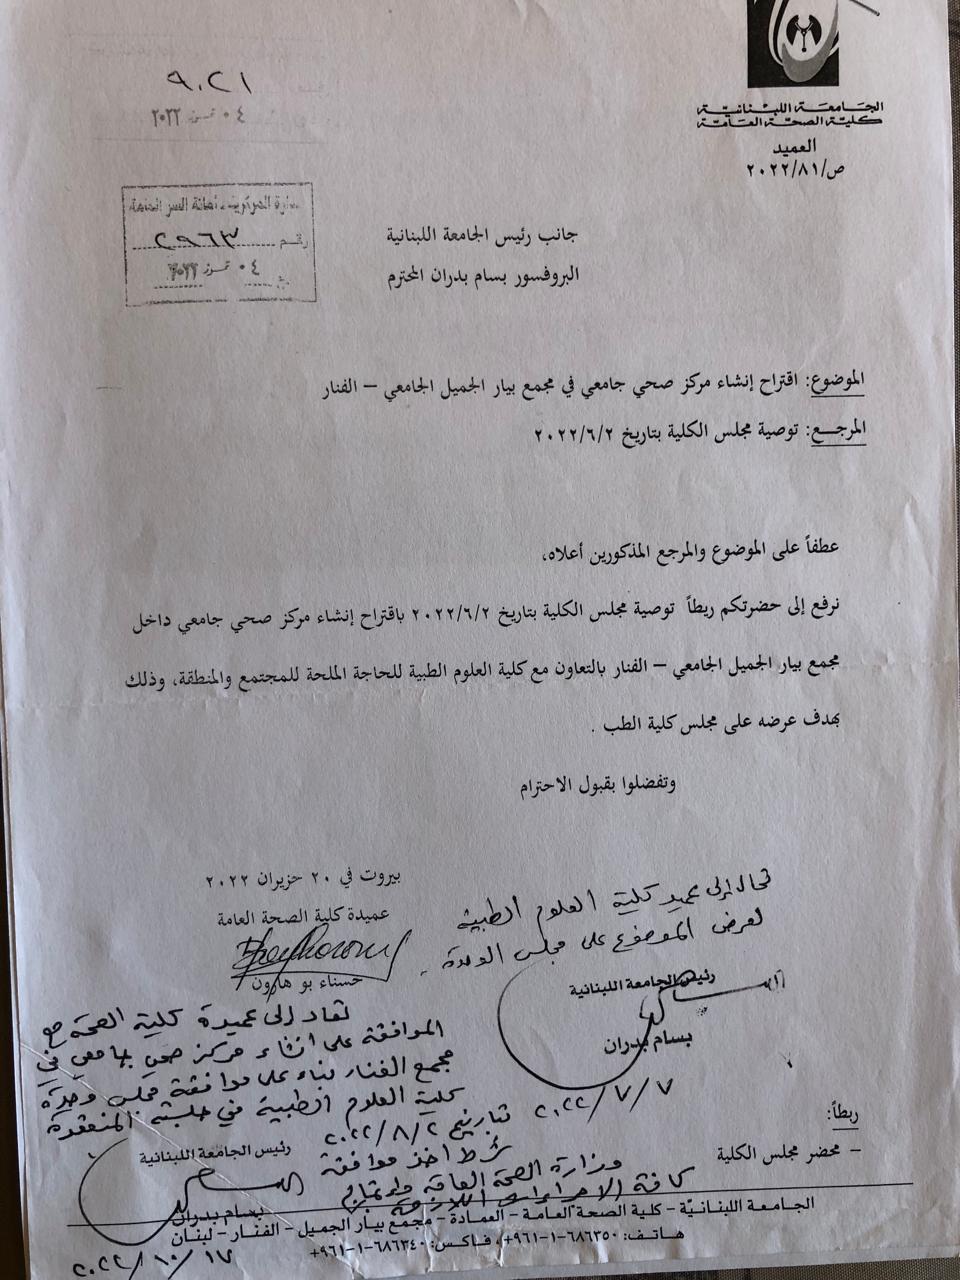 الجامعة اللبنانية
كلية الصحة العامة
العميد
ص/٢٠٢٢/٨١
٩٠٢١
٠٤ تموز ٢٠٢٢
رقم ٢٩٦٣
٠٤ تموز ٢٠٢٢
جانب رئيس الجامعة اللبنانية
البروفسور بسام بدران المحترم
الموضوع: اقتراح إنشاء مركز صحي جامعي في مجمع بيار الجميل الجامعي – الفنار
المرجع: توصية مجلس الكلية بتاريخ ٢٠٢٢/٦/٢
عطفاً على الموضوع والمرجع المذكورين أعلاه،
نرفع إلى حضرتكم ربطاً توصية مجلس الكلية بتاريخ ٢٠٢٢/٦/٢ باقتراح إنشاء مركز صحي جامعي داخل
مجمع بيار الجميل الجامعي – الفنار بالتعاون مع كلية العلوم الطبية للحاجة الملحة للمجتمع والمنطقة، وذلك
بهدف عرضه على مجلس كلية الطب .
وتفضلوا بقبول الاحترام
بيروت في ٢٠ حزيران ٢٠٢٢
عميدة كلية الصحة العامة
حسناء بو هارون
تحال إلى عميد كلية العلوم الطبية
لعرض الموضوع على مجلس الوحدة .
رئيس الجامعة اللبنانية
بسام بدران
٢٠٢٢/٧/٧
تعاد إلى عميدة كلية الصحة مع
الموافقة على انشاء مركز صحي جامعي في
مجمع الفنار بناء على موافقة مجلس وحدة
كلية العلوم الطبية في جلسته المنعقدة
بتاريخ ٢٠٢٢/٨/٢
شرط اخذ موافقة
وزارة الصحة العامة
كافة الاجراءات اللازمة
رئيس الجامعة اللبنانية
بسام بدران
٢٠٢٢/١٠/١٧
ربطاً:
– محضر مجلس الكلية
الجامعة اللبنانية – كلية الصحة العامة – العمادة – مجمع بيار الجميل – الفنار – لبنان
هاتف: ٦٨٦٣٥٠-١-٩٦١+ ، فاكس: ٦٨٦٣٤٠-١-٩٦١+